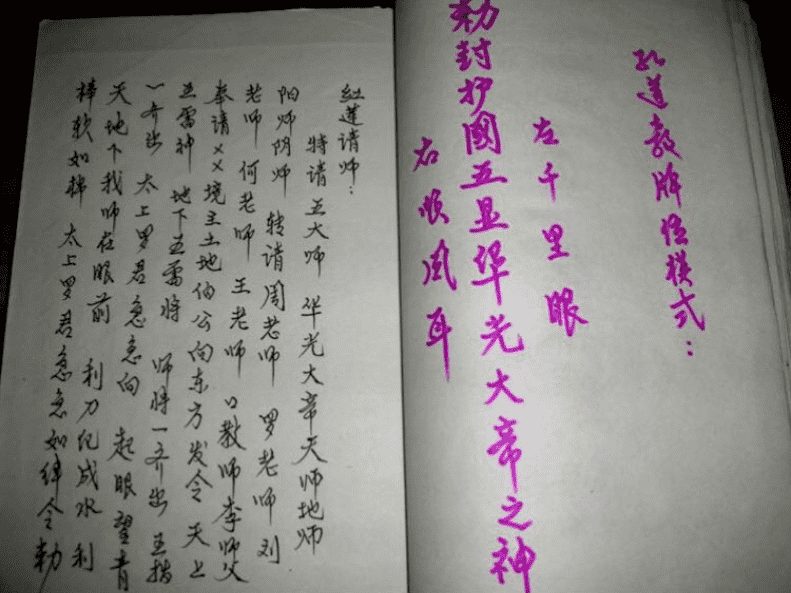 红莲请师：
特请五大师 华光大帝天师地师
阳师阴师 转请周老师 罗老师 刘
老师 何老师 王老师 口教师李师父
奉请××境主土地伯公向东方发令 天上
五雷神 地下五雷将 师将一齐出 五指
一齐出 太上罗君急急向 起眼望青
天地下我师在眼前 利刀化成水 利
棒软如棉 太上罗君急急如律令勅
孔道教牌位模式：
左千里眼
勅封护國五显华光大帝之神
右顺风耳